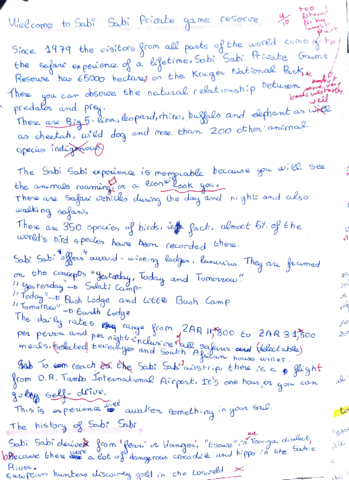 Welcome to Sabi Sabi Private game reserve
Since 1979 the visitors from all parts of the world come to
the safari experience of a lifetime. Sabi Sabi Private Game
Reserve has 65000 hectares on the Kruger National Park.
There you can observe the natural relationship between
predator and prey.
There are Big 5 - lion, leopard, rhino, buffalo and elephant as well
as cheetah, wild dog and more than 200 other animal
species indigenous
The Sabi Sabi experience is memorable because you will see
the animals roaming or a lion look you.
There are safari vehicles during the day and night and also
walking safaris
There are 350 species of birds, in fact, almost 5% of the
world's bird species have been recorded there.
Sabi Sabi offers award-winning lodges, luxurius They are formed
on the concepts "Yesterday, Today and Tomorrow".
"Yesterday" → Selati Camp.
"Today" → Bush Lodge and Little Bush Camp
"Tomorrow" → Earth Lodge
The daily rates range from ZAR 11 300 to ZAR 31,500
per person and per night inclusive all safaris and (delectable)
meals, selected beverages and South African house wines.
To reach the Sabi Sabi airstrip there is a flight
from O.R. Tambo International Airport. It's one hour, or you can
go by self-drive.
This is experience awaken something in your soul.
The history of Sabi Sabi
Sabi Sabi derives from fear in Tsonga dialect,
because there a lot of dangerous crocodile and hippo in the Sabie
River.
European hunters discovery gold in the Lowveld